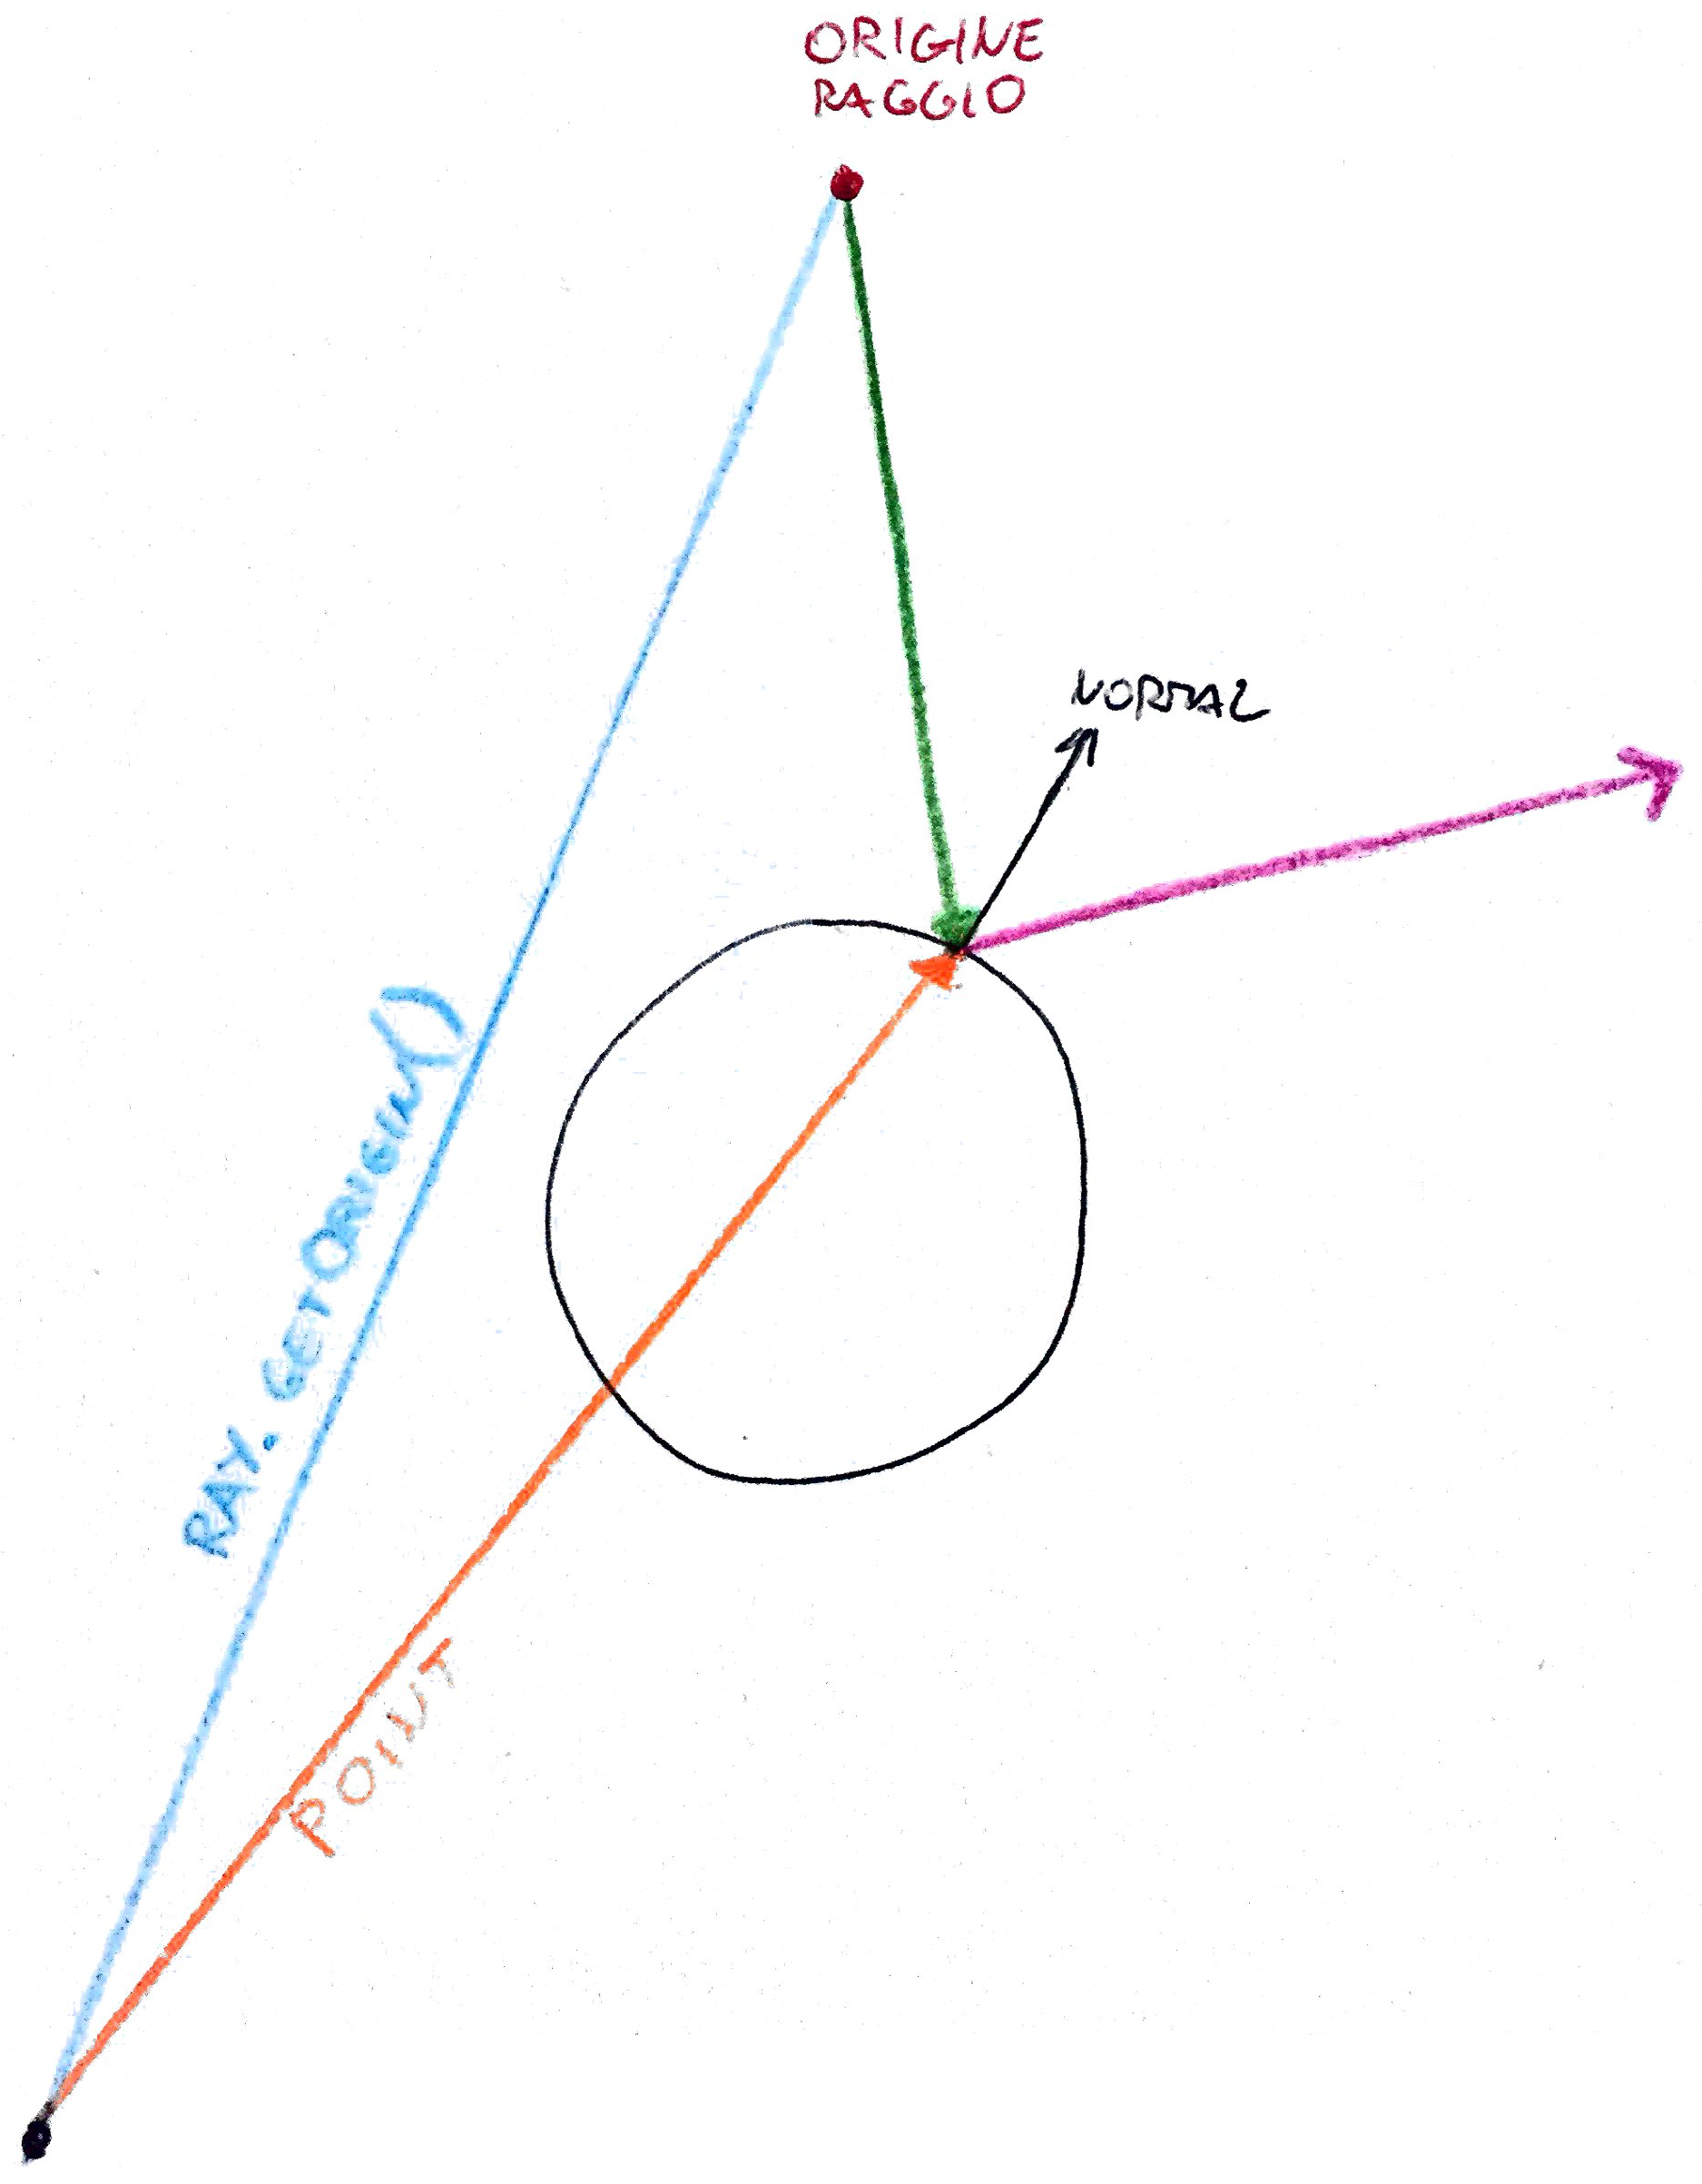 ORIGINE
RAGGIO
NORMAL
RAY. GETORIGIN()
POINT